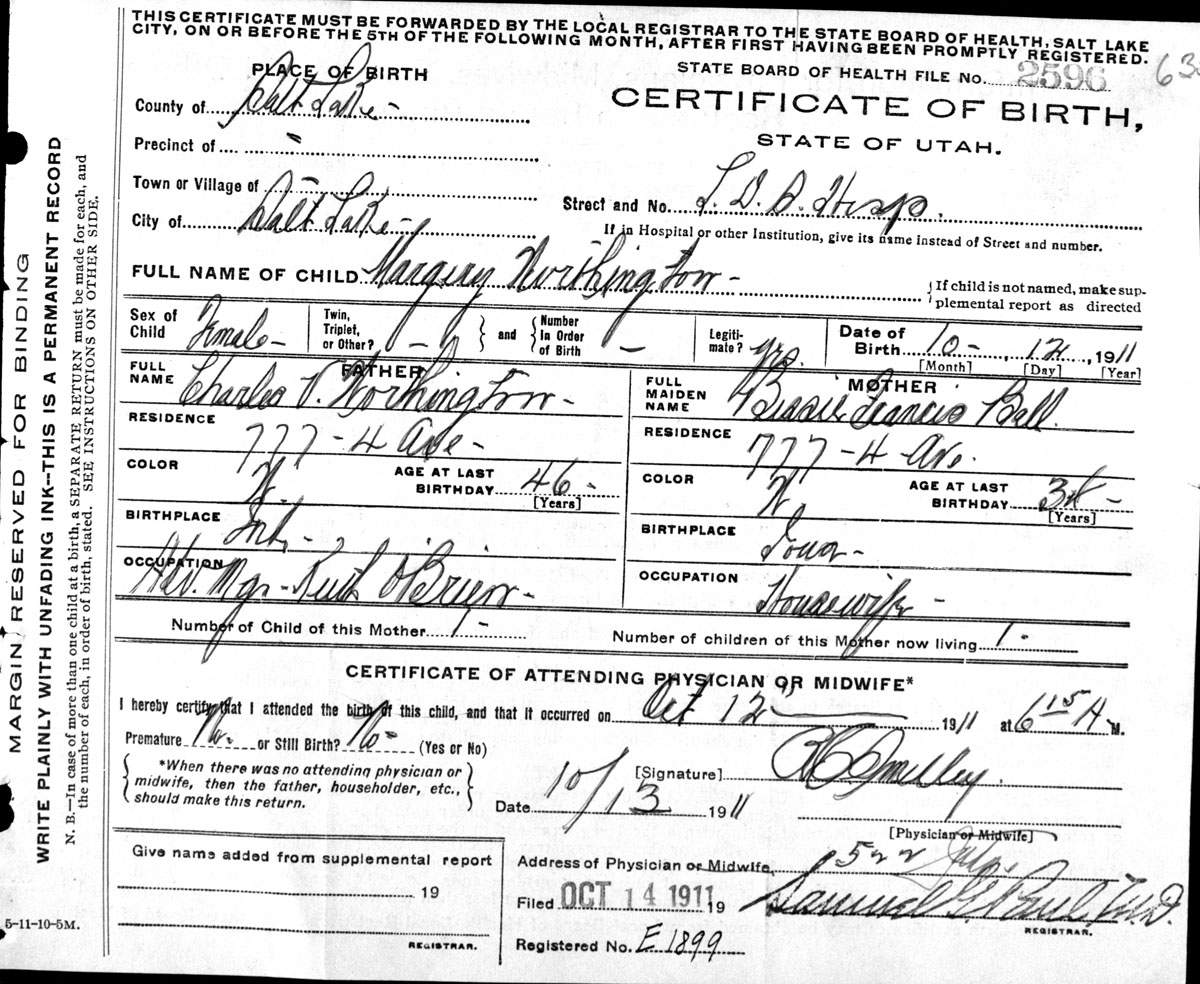 THIS CERTIFICATE MUST BE FORWARDED BY THE LOCAL REGISTRAR TO THE STATE BOARD OF HEALTH, SALT LAKE
CITY, ON OR BEFORE THE 5TH OF THE FOLLOWING MONTH, AFTER FIRST HAVING BEEN PROMPTLY REGISTERED.
PLACE OF BIRTH
STATE BOARD OF HEALTH FILE No. 2596
County of Salt Lake -
CERTIFICATE OF BIRTH,
STATE OF UTAH.
Precinct of -
Town or Village of -
Street and No. L. D. S. Hosp.
City of Salt Lake -
If in Hospital or other Institution, give its name instead of Street and number.
FULL NAME OF CHILD Margery Worthington -
If child is not named, make sup-
plemental report as directed
Sex of Child Female -
Twin, Triplet, or Other? -
and
Number In Order of Birth -
Legiti-mate? Yes.
Date of Birth 10 - , 12 , 1911
[Month] [Day] [Year]
FATHER
FULL NAME Charles V. Worthington -
MOTHER
FULL MAIDEN NAME Bessie Francis Ball.
RESIDENCE 777 - 4 Ave -
RESIDENCE 777 - 4 Ave.
COLOR W.
AGE AT LAST BIRTHDAY 46 -
[Years]
COLOR W
AGE AT LAST BIRTHDAY
[Years]
BIRTHPLACE
BIRTHPLACE Iowa -
OCCUPATION Adv. Mgr - Keith O'Brien -
OCCUPATION Housewife -
Number of Child of this Mother 1 -
Number of children of this Mother now living 1 -
CERTIFICATE OF ATTENDING PHYSICIAN OR MIDWIFE*
I hereby certify that I attended the birth of this child, and that it occurred on Oct 12 1911 at 6 15 A M.
Premature No. or Still Birth? No - (Yes or No)
*When there was no attending physician or
midwife, then the father, householder, etc.,
should make this return.
[Signature]
Date 10/13 1911
[Physician or Midwife]
Give name added from supplemental report
19
REGISTRAR.
Address of Physician or Midwife, 1522
Filed OCT 14 1911 19
Samuel G. Paul, M.D.
REGISTRAR.
Registered No. E 1899
5-11-10-5M.
MARGIN RESERVED FOR BINDING
WRITE PLAINLY WITH UNFADING INK--THIS IS A PERMANENT RECORD
N. B.—In case of more than one child at a birth, a SEPARATE RETURN must be made for each, and
the number of each, in order of birth, stated. SEE INSTRUCTIONS ON OTHER SIDE.